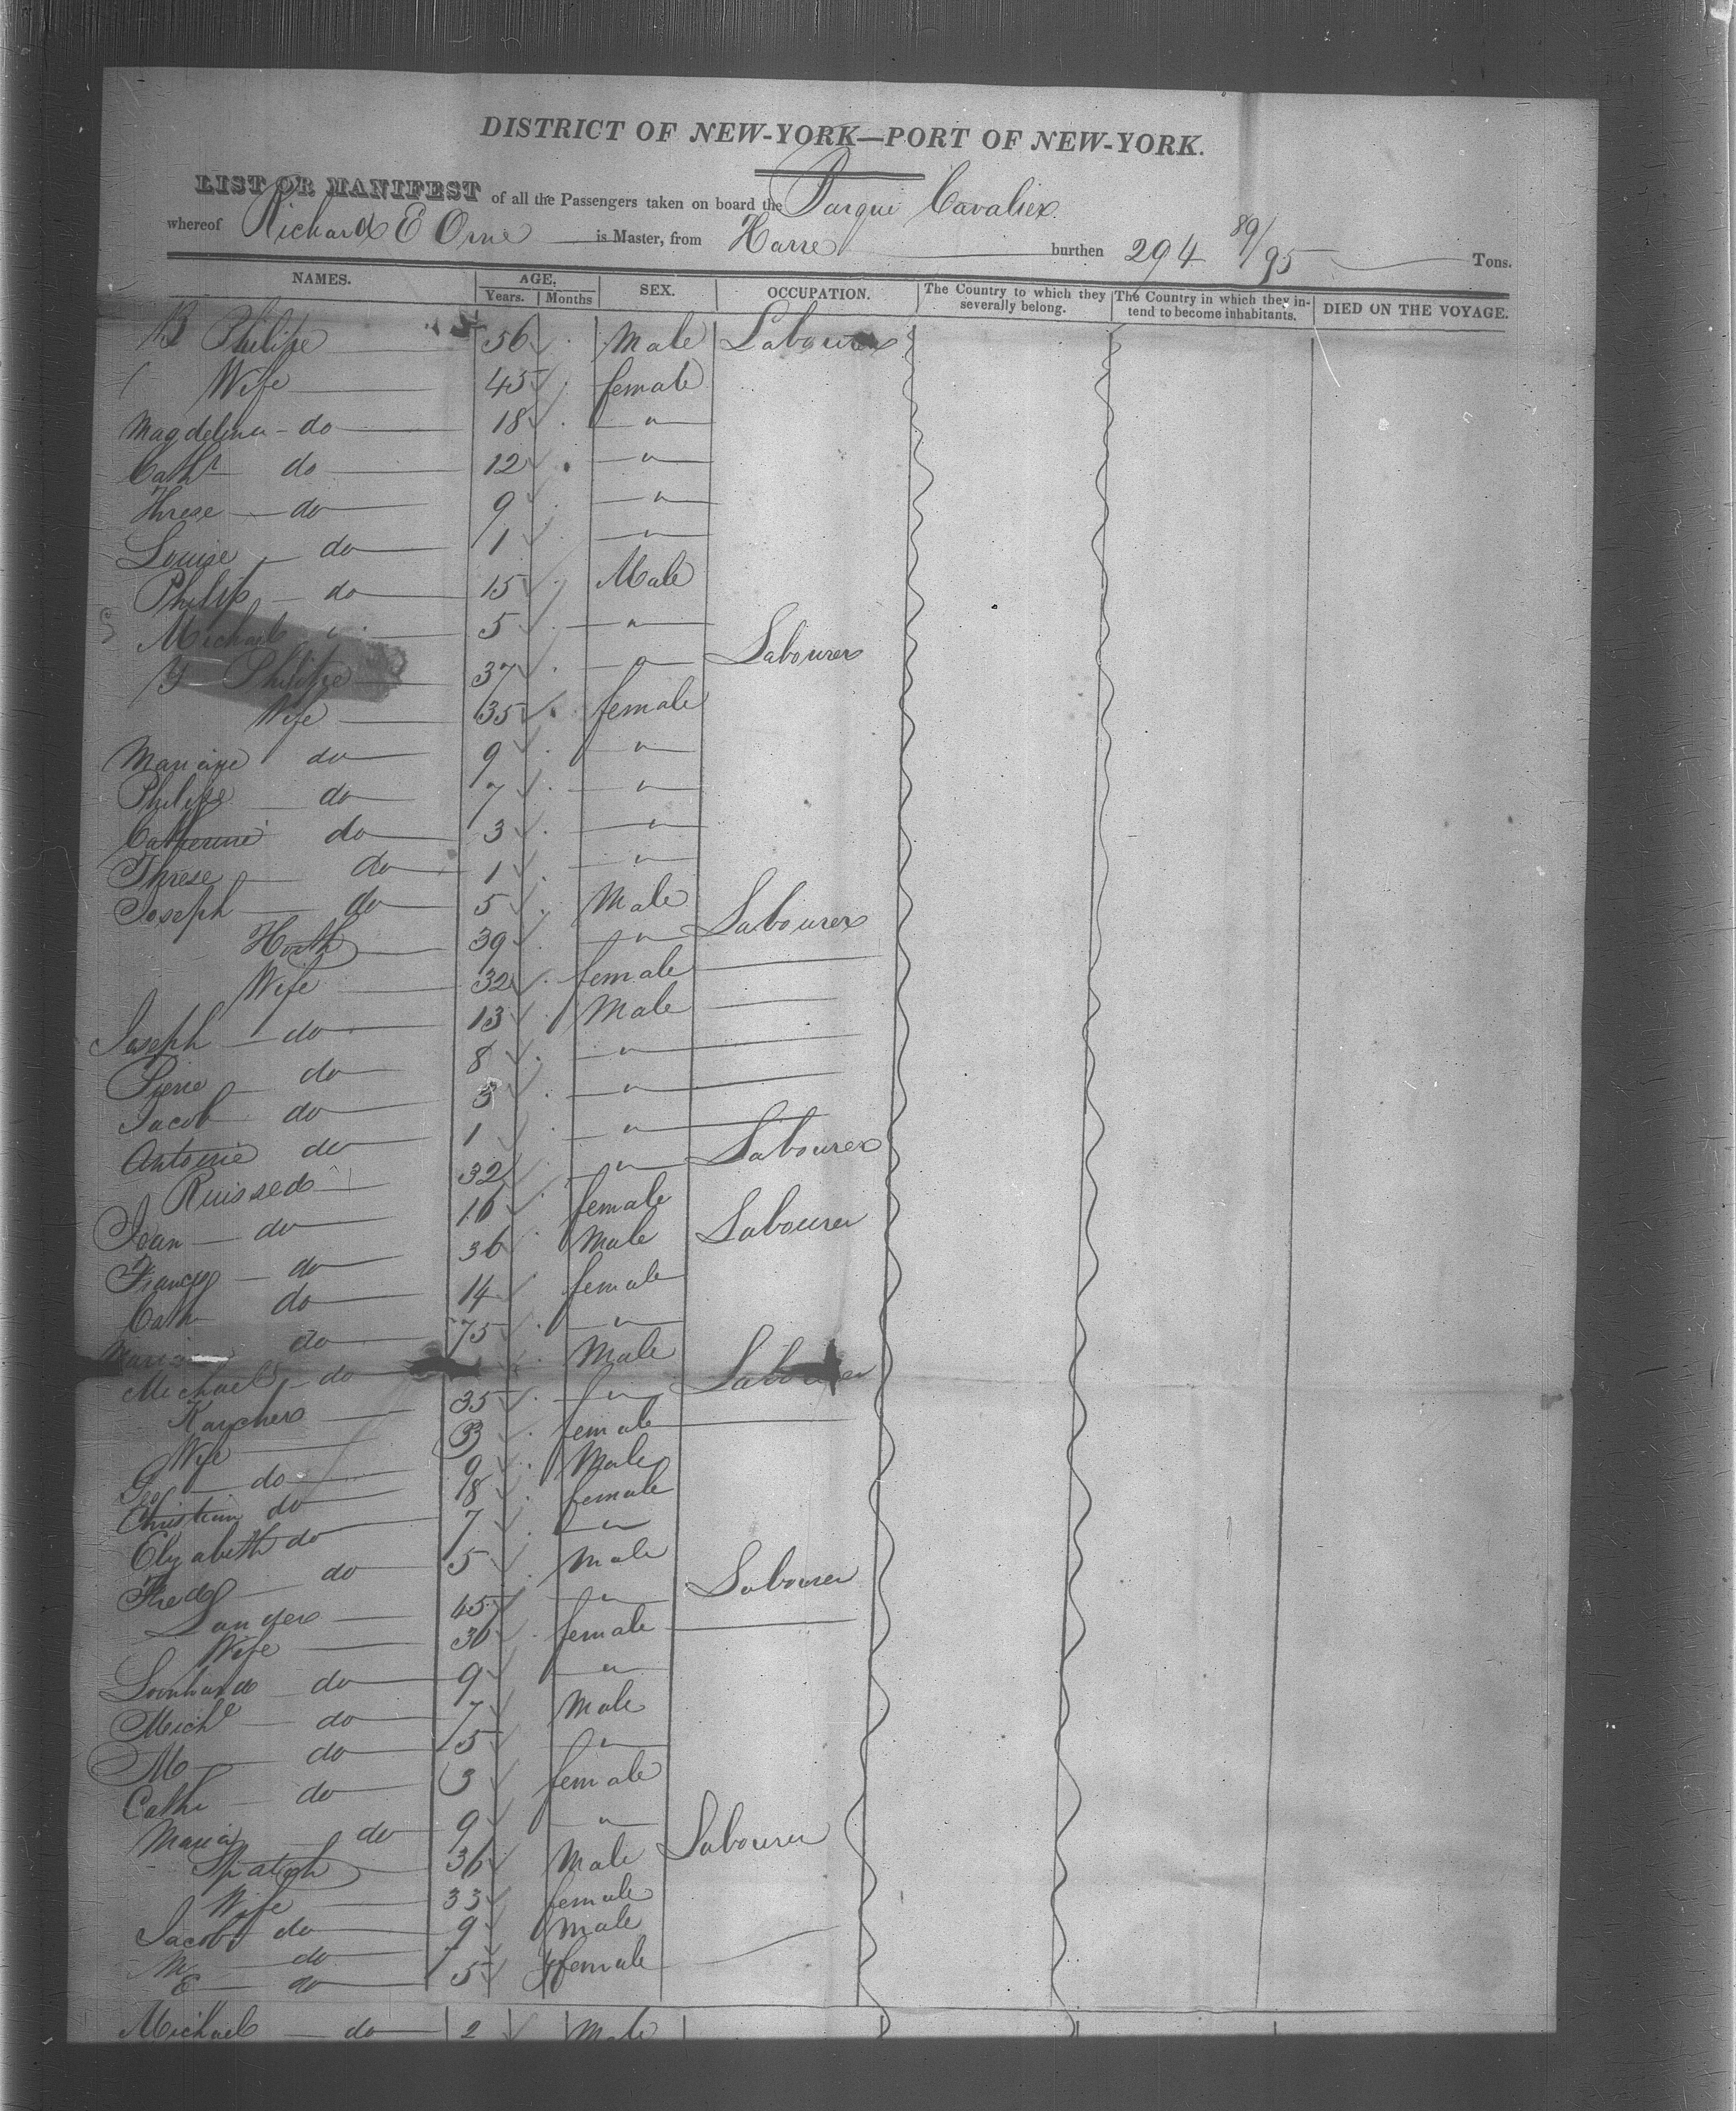 DISTRICT OF NEW-YORK—PORT OF NEW-YORK.
LIST OR MANIFEST of all the Passengers taken on board the Barque Cavalier
whereof Richard E Orne is Master, from Havre burthen 294 89/95 Tons.
NAMES. AGE. SEX. OCCUPATION. The Country to which they severally belong. The Country in which they intend to become inhabitants. DIED ON THE VOYAGE.
Years. Months
B Philipe 56 Male Labourer
Wife 45 female
Magdelina do 18 "
Cath do 12 "
Threse do 9 "
Louise do 1 "
Philip do 15 Male
Michael 5 "
Philipe 37 " Labourer
Wife 35 female
Mariane do 9 "
Philipe do 7 "
Catherine do 3 "
Threse do 1 "
Joseph do 5 Male
Horth 39 " Labourer
Wife 32 female
Joseph do 13 Male
Pierre do 8 "
Jacob do 3 "
Antoine do 1 "
32 " Labourer
Jean do 16 female
Francs do 36 Male Labourer
Cath do 14 female
Maria do 75 "
Michael do Male
Karcher 35 " Labourer
Wife 33 female
Geo do 9 Male
Christian do 18 female
Elizabeth do 7 "
Fredk do 5 male
Lander 45 " Labourer
Wife 36 female
do 9 "
Michl do 7 Male
M do 5 "
Cath do 3 female
Maria do 9 "
36 Male Labourer
Wife 33 female
Jacob do 9 male
M do 7
E do 5 female
Michael do 2 Male